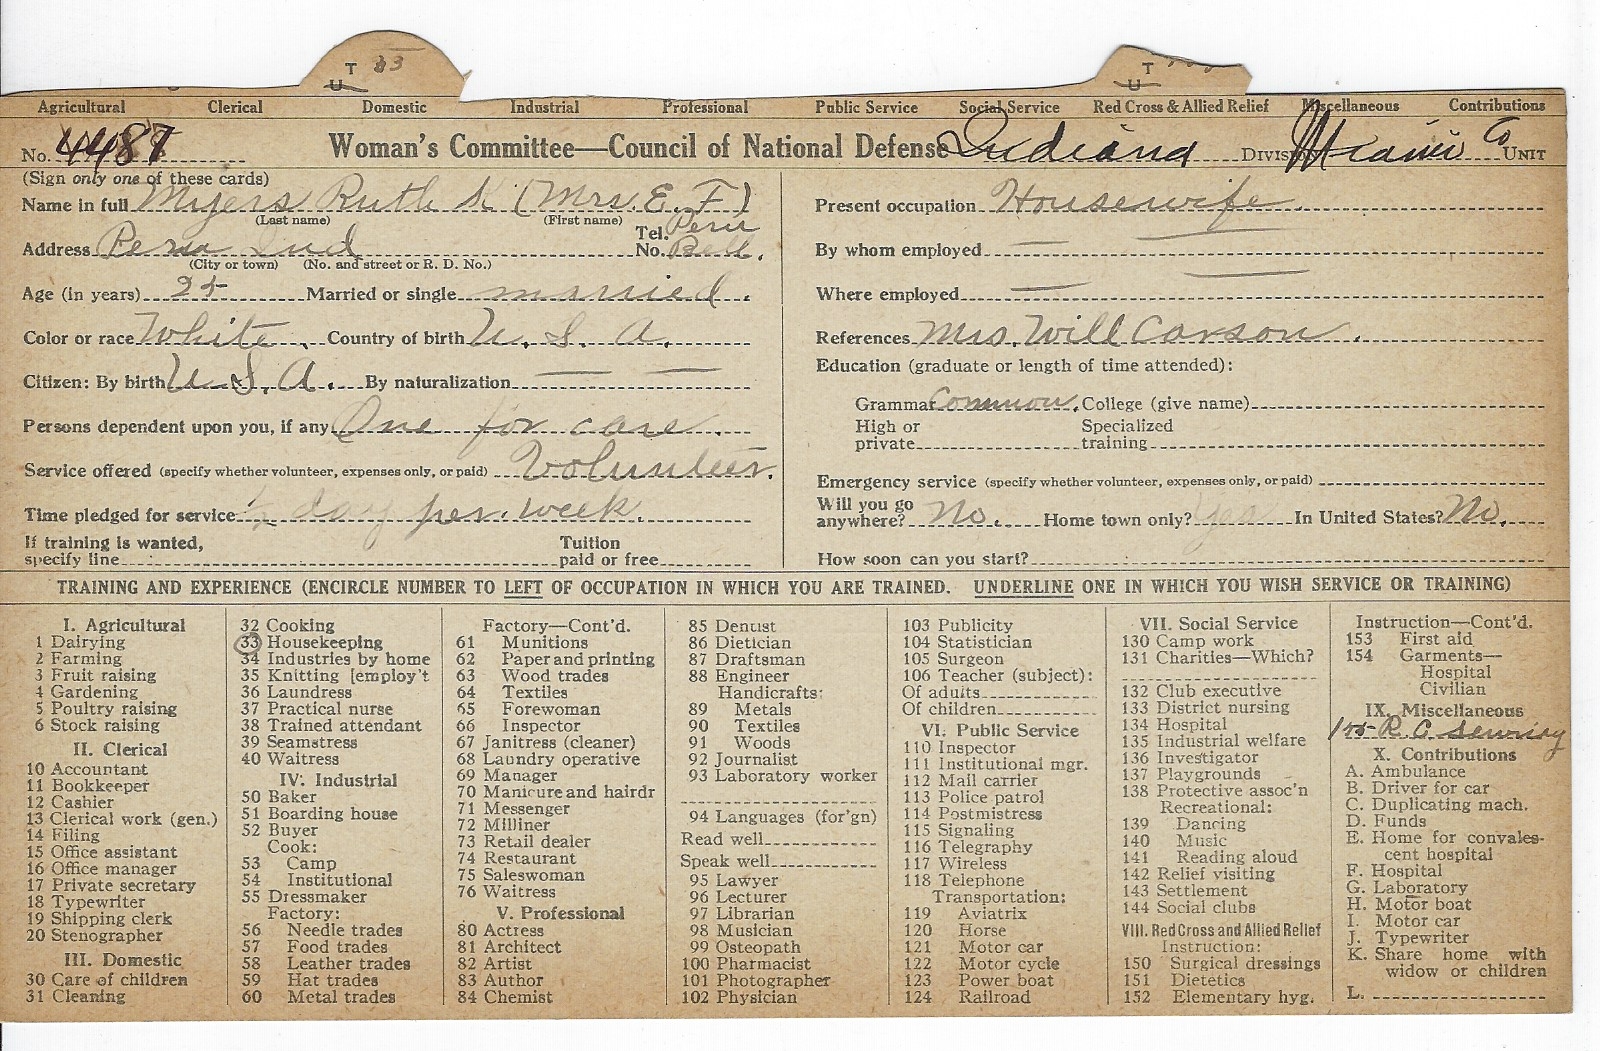 T 33
U
T
U
Agricultural Clerical Domestic Industrial Professional Public Service Social Service Red Cross & Allied Relief Miscellaneous Contributions
No. 4487 Woman's Committee—Council of National Defense Indiana DIVISION Miami Co UNIT
(Sign only one of these cards)
Name in full Myers Ruth K (Mrs. E. F)
(Last name) (First name)
Address Peru Ind Tel. No. Peru Bell.
(City or town) (No. and street or R. D. No.)
Age (in years) 25 Married or single married.
Color or race White. Country of birth U. S. A.
Citizen: By birth U. S. A. By naturalization — —
Persons dependent upon you, if any One for care.
Service offered (specify whether volunteer, expenses only, or paid) Volunteer.
Time pledged for service 1/2 day per. week.
If training is wanted, specify line Tuition paid or free
Present occupation Housewife.
By whom employed —
Where employed —
References Mrs. Will Carson.
Education (graduate or length of time attended):
Grammar Common. College (give name)
High or private Specialized training
Emergency service (specify whether volunteer, expenses only, or paid)
Will you go anywhere? No. Home town only? Yes In United States? No.
How soon can you start?
TRAINING AND EXPERIENCE (ENCIRCLE NUMBER TO LEFT OF OCCUPATION IN WHICH YOU ARE TRAINED. UNDERLINE ONE IN WHICH YOU WISH SERVICE OR TRAINING)
I. Agricultural
1 Dairying
2 Farming
3 Fruit raising
4 Gardening
5 Poultry raising
6 Stock raising
II. Clerical
10 Accountant
11 Bookkeeper
12 Cashier
13 Clerical work (gen.)
14 Filing
15 Office assistant
16 Office manager
17 Private secretary
18 Typewriter
19 Shipping clerk
20 Stenographer
III. Domestic
30 Care of children
31 Cleaning
32 Cooking
33 Housekeeping
34 Industries by home
35 Knitting [employ't
36 Laundress
37 Practical nurse
38 Trained attendant
39 Seamstress
40 Waitress
IV. Industrial
50 Baker
51 Boarding house
52 Buyer
Cook:
53 Camp
54 Institutional
55 Dressmaker
Factory:
56 Needle trades
57 Food trades
58 Leather trades
59 Hat trades
60 Metal trades
Factory—Cont'd.
61 Munitions
62 Paper and printing
63 Wood trades
64 Textiles
65 Forewoman
66 Inspector
67 Janitress (cleaner)
68 Laundry operative
69 Manager
70 Manicure and hairdr
71 Messenger
72 Milliner
73 Retail dealer
74 Restaurant
75 Saleswoman
76 Waitress
V. Professional
80 Actress
81 Architect
82 Artist
83 Author
84 Chemist
85 Dentist
86 Dietician
87 Draftsman
88 Engineer
Handicrafts:
89 Metals
90 Textiles
91 Woods
92 Journalist
93 Laboratory worker
94 Languages (for'gn)
Read well
Speak well
95 Lawyer
96 Lecturer
97 Librarian
98 Musician
99 Osteopath
100 Pharmacist
101 Photographer
102 Physician
103 Publicity
104 Statistician
105 Surgeon
106 Teacher (subject):
Of adults
Of children
VI. Public Service
110 Inspector
111 Institutional mgr.
112 Mail carrier
113 Police patrol
114 Postmistress
115 Signaling
116 Telegraphy
117 Wireless
118 Telephone
Transportation:
119 Aviatrix
120 Horse
121 Motor car
122 Motor cycle
123 Power boat
124 Railroad
VII. Social Service
130 Camp work
131 Charities—Which?
132 Club executive
133 District nursing
134 Hospital
135 Industrial welfare
136 Investigator
137 Playgrounds
138 Protective assoc'n
Recreational:
139 Dancing
140 Music
141 Reading aloud
142 Relief visiting
143 Settlement
144 Social clubs
VIII. Red Cross and Allied Relief
Instruction:
150 Surgical dressings
151 Dietetics
152 Elementary hyg.
Instruction—Cont'd.
153 First aid
154 Garments—
Hospital
Civilian
IX. Miscellaneous
155 R. C Sewing
X. Contributions
A. Ambulance
B. Driver for car
C. Duplicating mach.
D. Funds
E. Home for convales-
cent hospital
F. Hospital
G. Laboratory
H. Motor boat
I. Motor car
J. Typewriter
K. Share home with
widow or children
L.